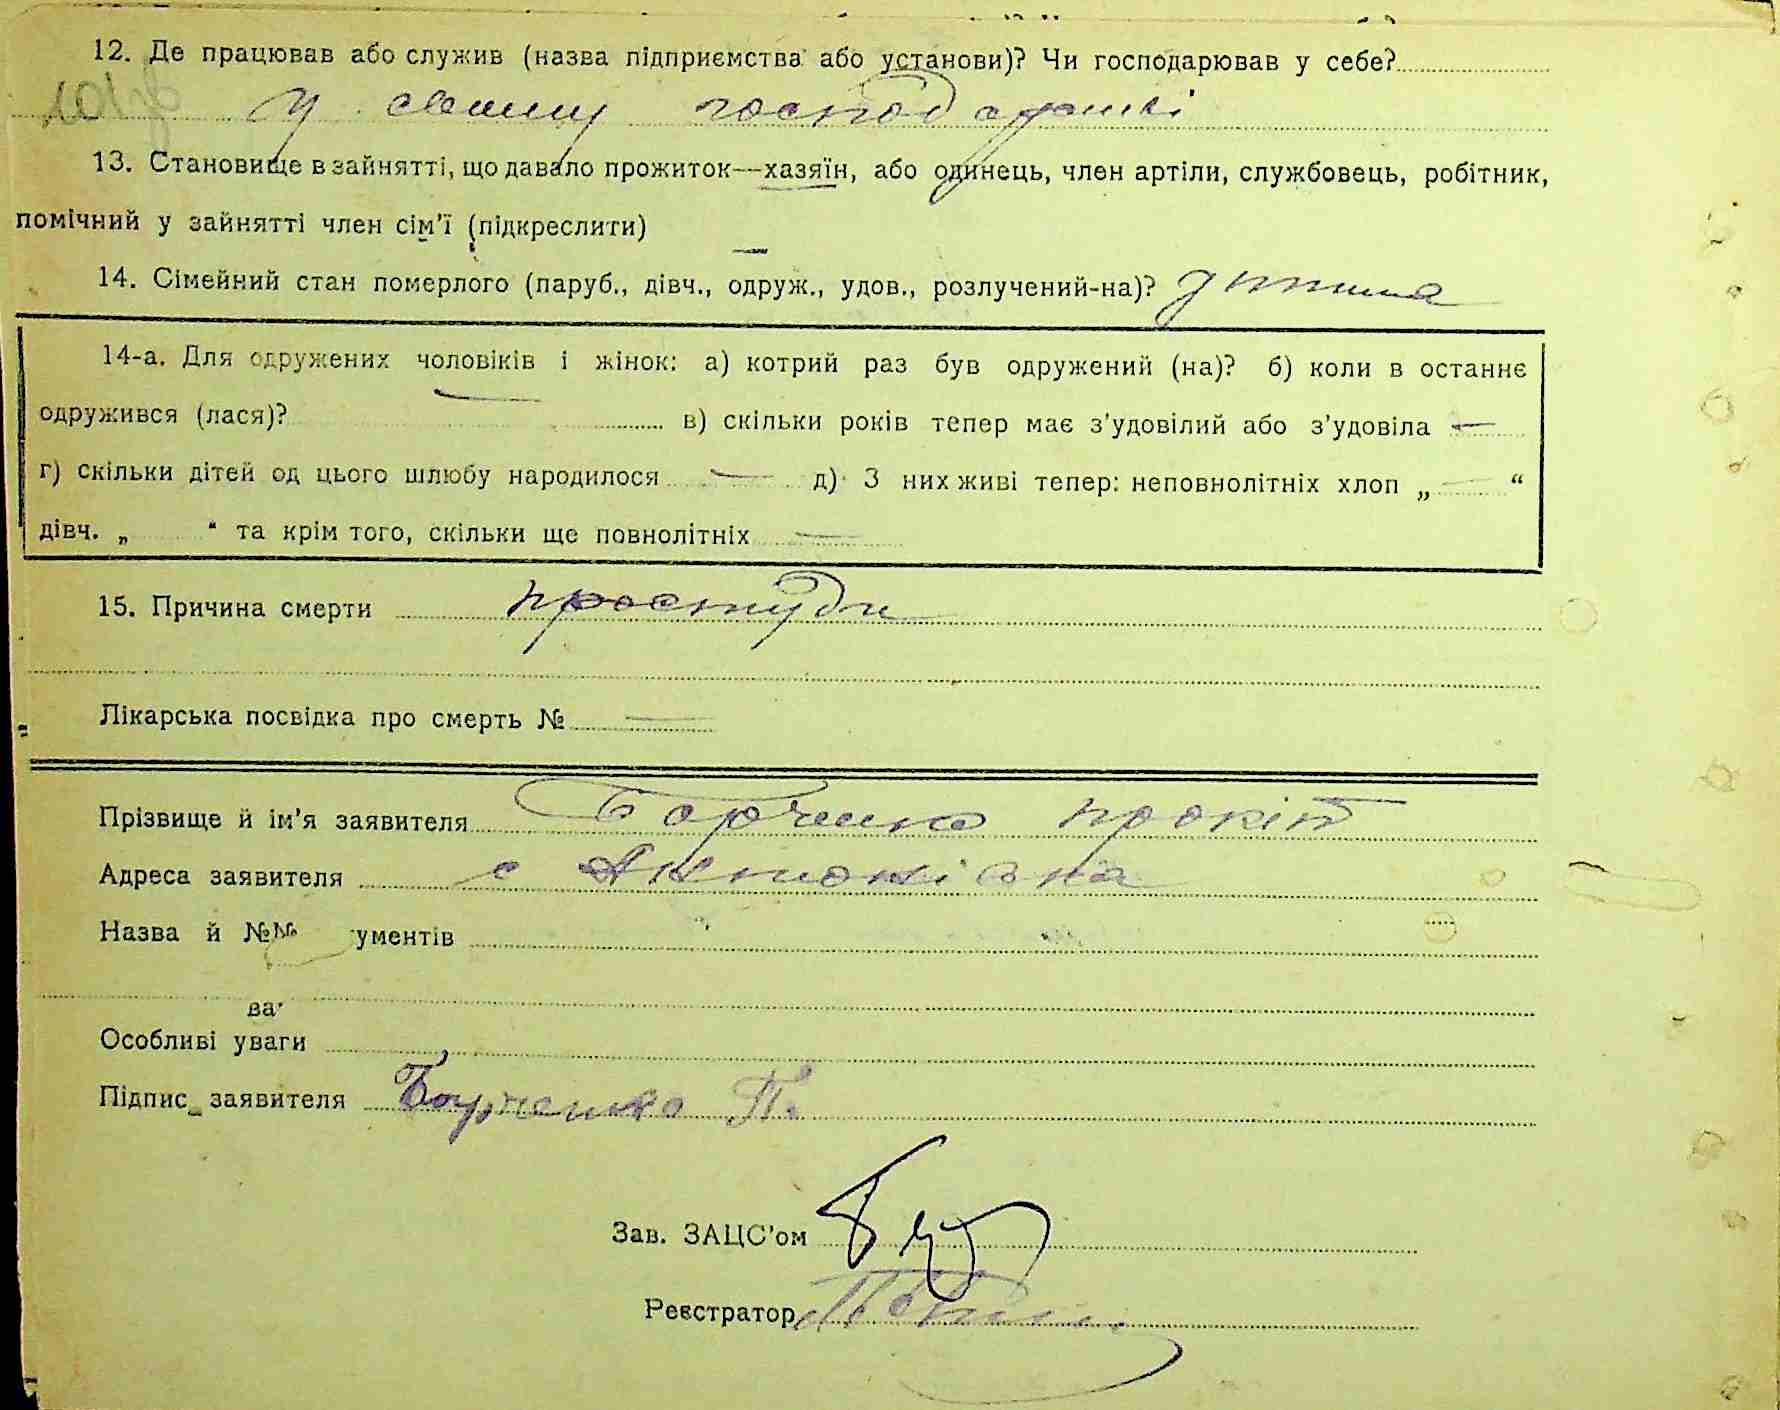 12. Де працював або служив (назва підприємства або установи)? Чи господарював у себе?
у своєму господарстві
13. Становище в зайнятті, що давало прожиток—хазяїн, або одинець, член артіли, службовець, робітник,
помічний у зайнятті член сім'ї (підкреслити)
14. Сімейний стан померлого (паруб., дівч., одруж., удов., розлучений-на)? дитина
14-а. Для одружених чоловіків і жінок: а) котрий раз був одружений (на)? б) коли в останнє
одружився (лася)? — в) скільки років тепер має з'удовілий або з'удовіла —
г) скільки дітей од цього шлюбу народилося — д) З них живі тепер: неповнолітніх хлоп „ — “
дівч. „ “ та крім того, скільки ще повнолітніх —
15. Причина смерти простуди
Лікарська посвідка про смерть № —
Прізвище й ім'я заявителя Борченко Прокіп
Адреса заявителя с Антонівка
Назва й №№ ументів
ва
Особливі уваги
Підпис заявителя Борченко П.
Зав. ЗАЦС'ом
Реєстратор